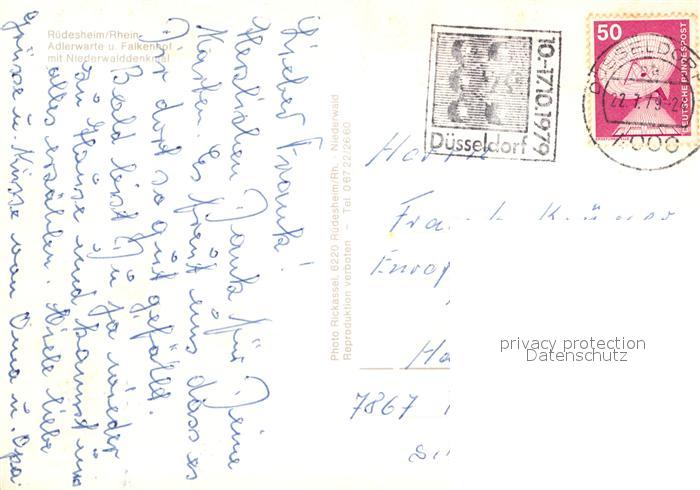 Rüdesheim/Rhein
Adlerwarte u. Falkenhof
mit Niederwalddenkmal
Lieber Frank!
Herzlichen Dank für Deine
Karten. Es freut uns dass es
Dir dort so gut gefällt.
Bald bist Du ja wieder
zu Hause und kannst uns
alles erzählen. Viele liebe
Grüsse u. Küsse von Oma u. Opa.
Photo Rickassel, 6220 Rüdesheim/Rh. - Niederwald
Reproduktion verboten – Tel. 0 67 22/26 60
10.-17.10.1979
Düsseldorf
50
DEUTSCHE BUNDESPOST
DÜSSELDORF
22.7.79
4000
Frank
Europ
7867
privacy protection
Datenschutz